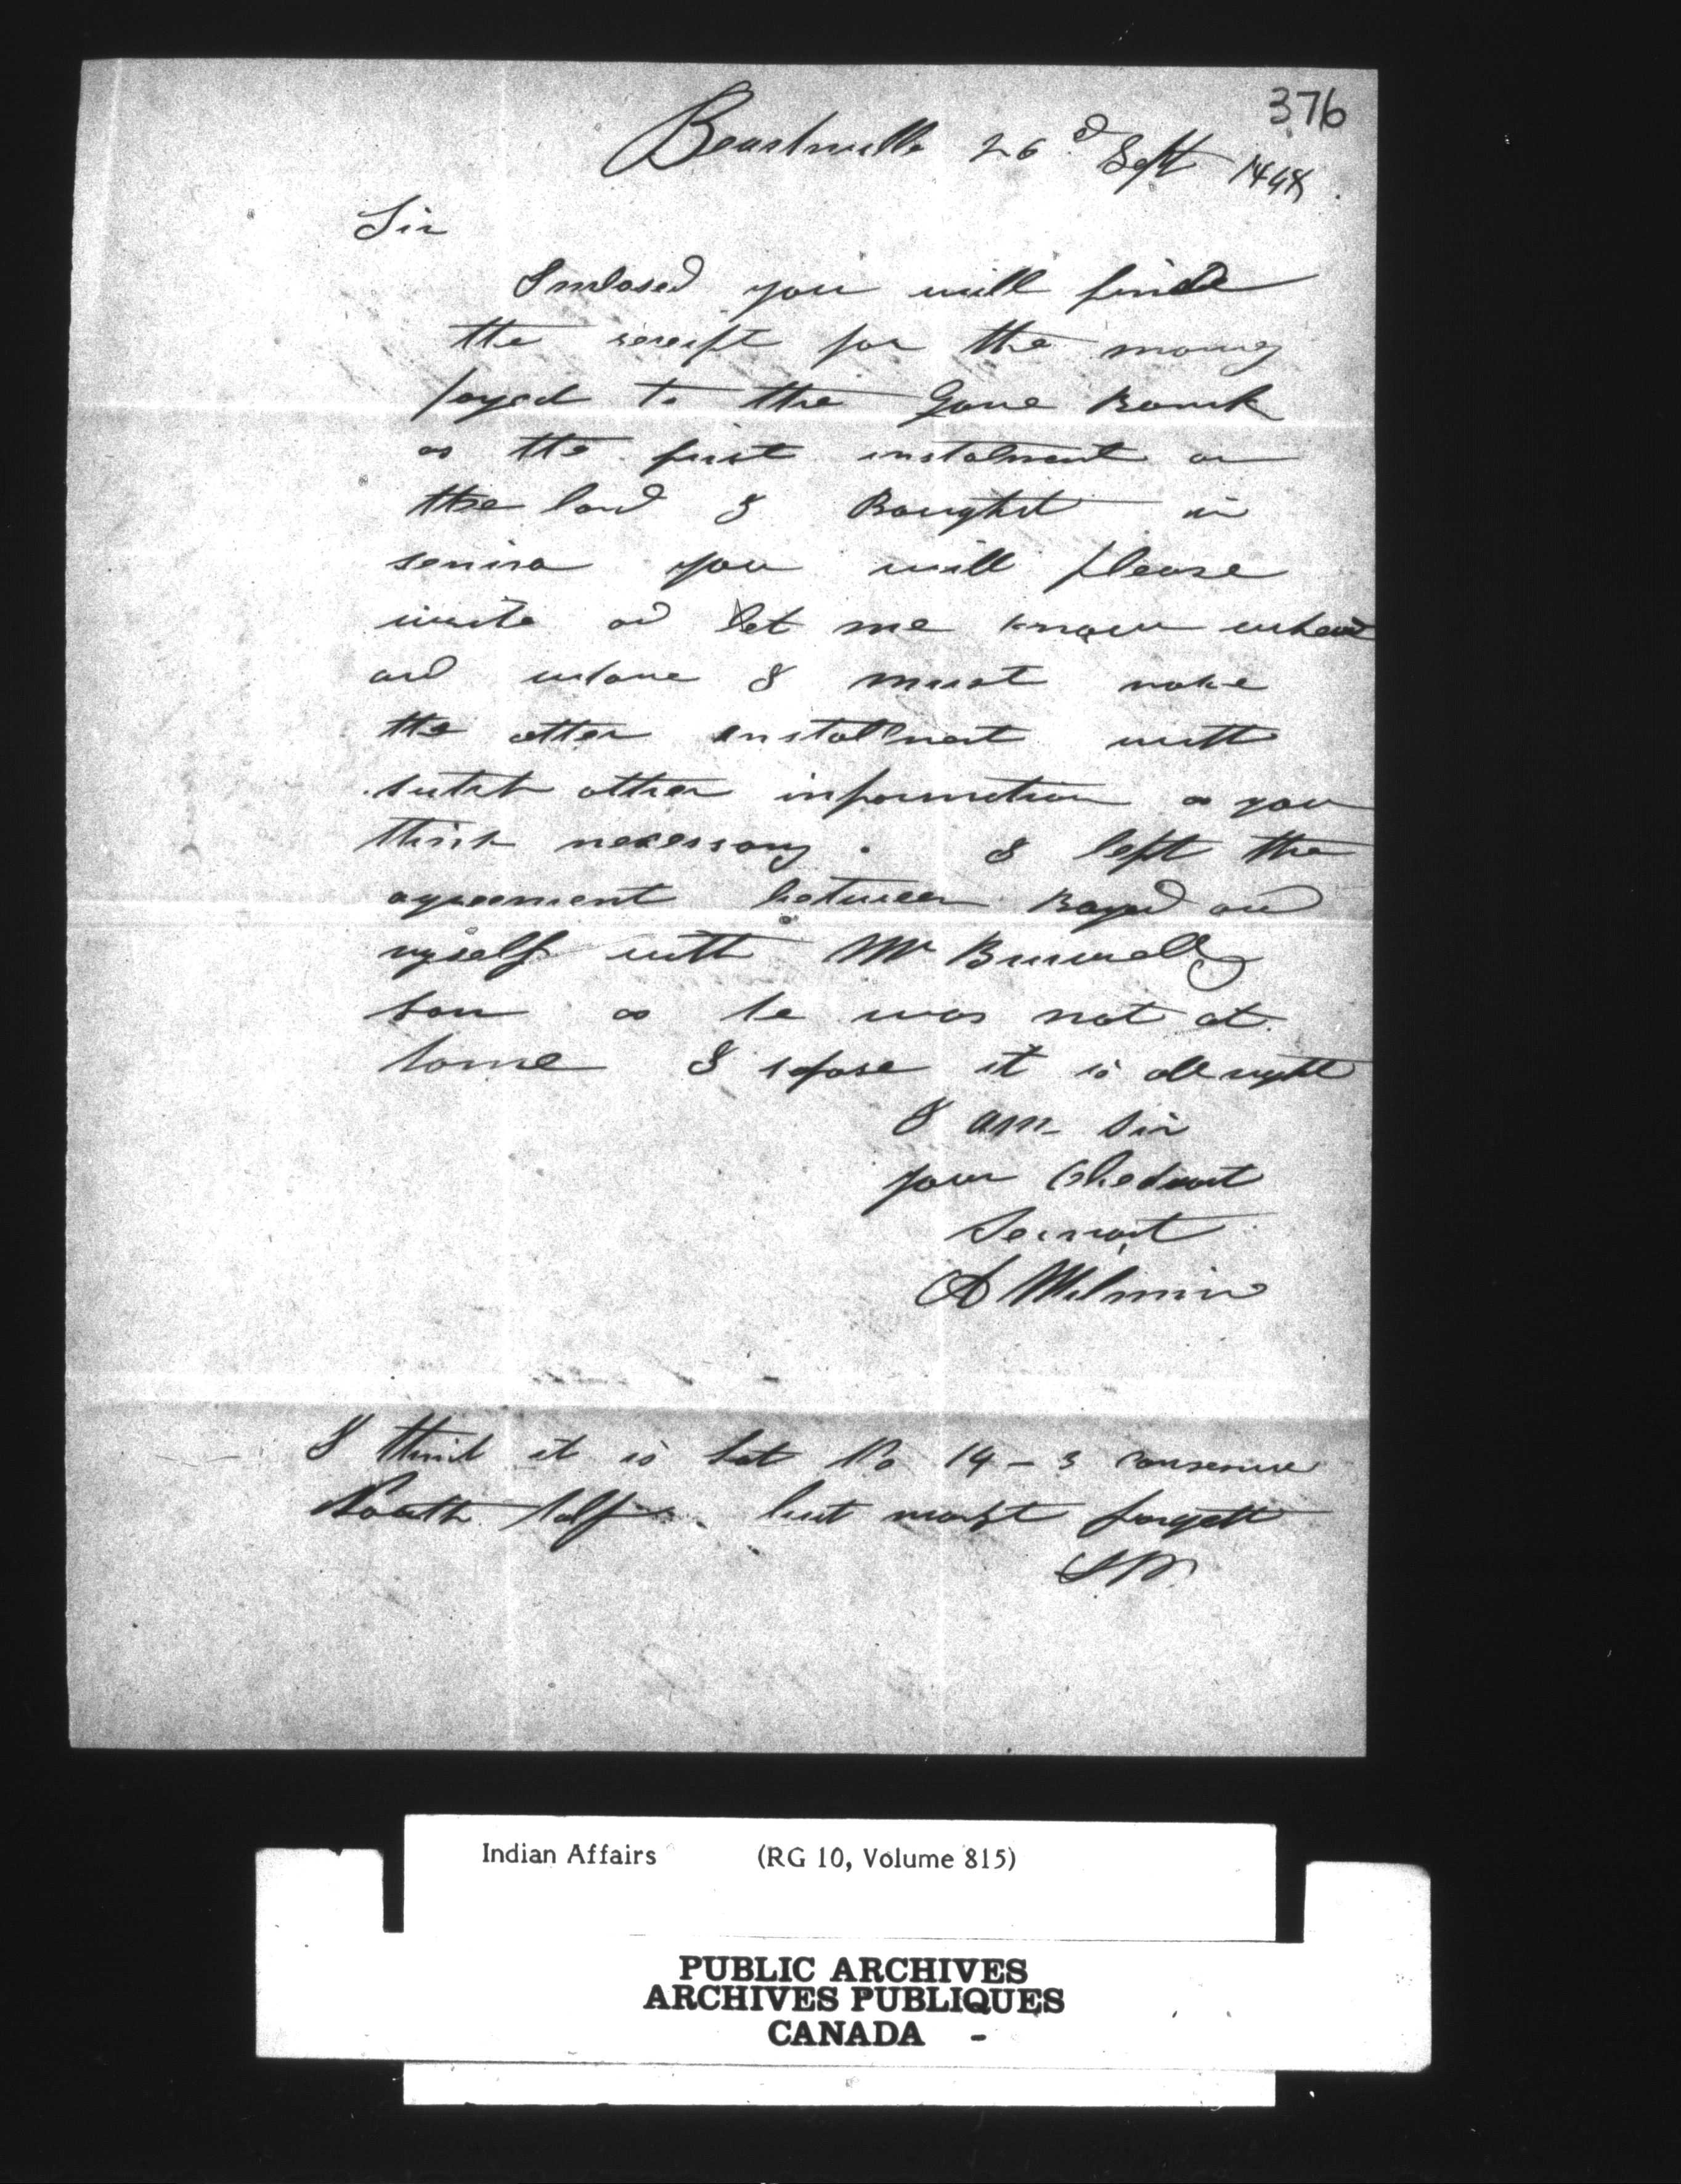 376
26 Sept
Sir
Inclosed you will finde
the receipt for the money
payed to the Gore Bank
as the first instalment on
the land I Bought in
you will please
write ad let me know
and I must make
the other installment with
sutch other information as you
think necessary. I left the
agreement between and
myself with Mr
son as he was not at
home I spose it is all right
I am Sir
your Obediant
Servant
A
I think it is Lot No 14 - 3
half but
Indian Affairs (RG 10, Volume 815)
PUBLIC ARCHIVES
ARCHIVES PUBLIQUES
CANADA